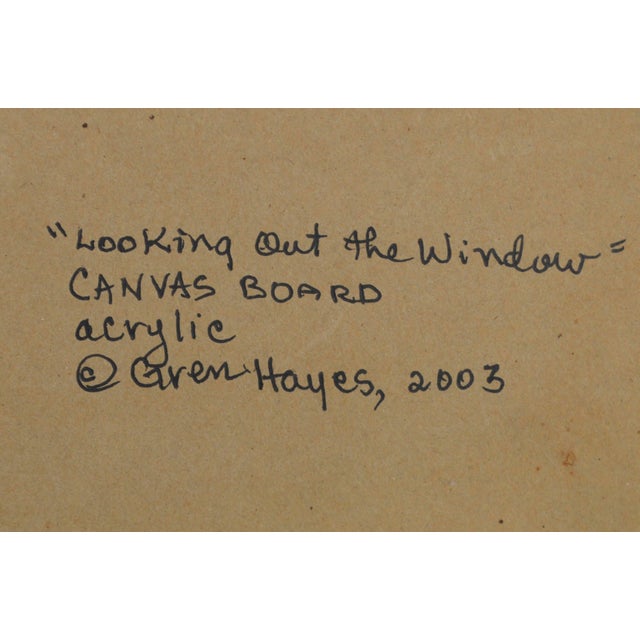 "Looking Out the Window"
CANVAS BOARD
acrylic
© Gren Hayes, 2003